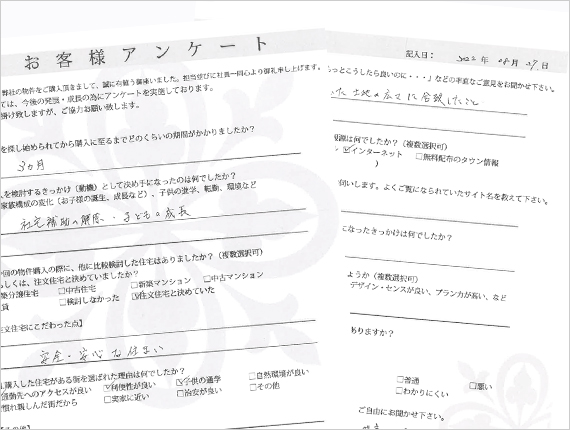 お客様アンケート
弊社の物件をご購入頂きまして、誠に有難う御座いました。担当並びに社員一同心より御礼申し上げます。
ては、今後の発展・成長の為にアンケートを実施しております。
掛け致しますが、ご協力お願い致します。
を探し始められてから購入に至るまでどのくらいの期間がかかりましたか?
3ヵ月
を検討するきっかけ(動機)として決め手になったのは何でしたか?
家族構成の変化(お子様の誕生、成長など)、子供の進学、転勤、環境など
社宅補助の解除・子どもの成長
回の物件購入の際に、他に比較検討した住宅はありましたか?(複数選択可)
しくは、注文住宅と決めていましたか?
築分譲住宅 □中古住宅 □新築マンション □中古マンション
貸 □検討しなかった ☑注文住宅と決めていた
注文住宅にこだわった点】
安全・安心な住まい
購入した住宅がある街を選ばれた理由は何でしたか?
通勤先へのアクセスが良い ☑利便性が良い ☑子供の通学 □自然環境が良い
慣れ親しんだ街だから □実家に近い □治安が良い □その他
記入日: 2022年 08月 27日
もっとこうしたら良いのに・・・」などの率直なご意見をお聞かせ下さい。
た土地の広さに合致したこと
報源は何でしたか?(複数選択可)
☑インターネット □無料配布のタウン情報
)
伺いします。よくご覧になられていたサイト名を教えて下さい。
になったきっかけは何でしたか?
ようか(複数選択可)
デザイン・センスが良い、プラン力が高い、など
ありますか?
□普通 □悪い
□わかりにくい
ご自由にお聞かせ下さい。